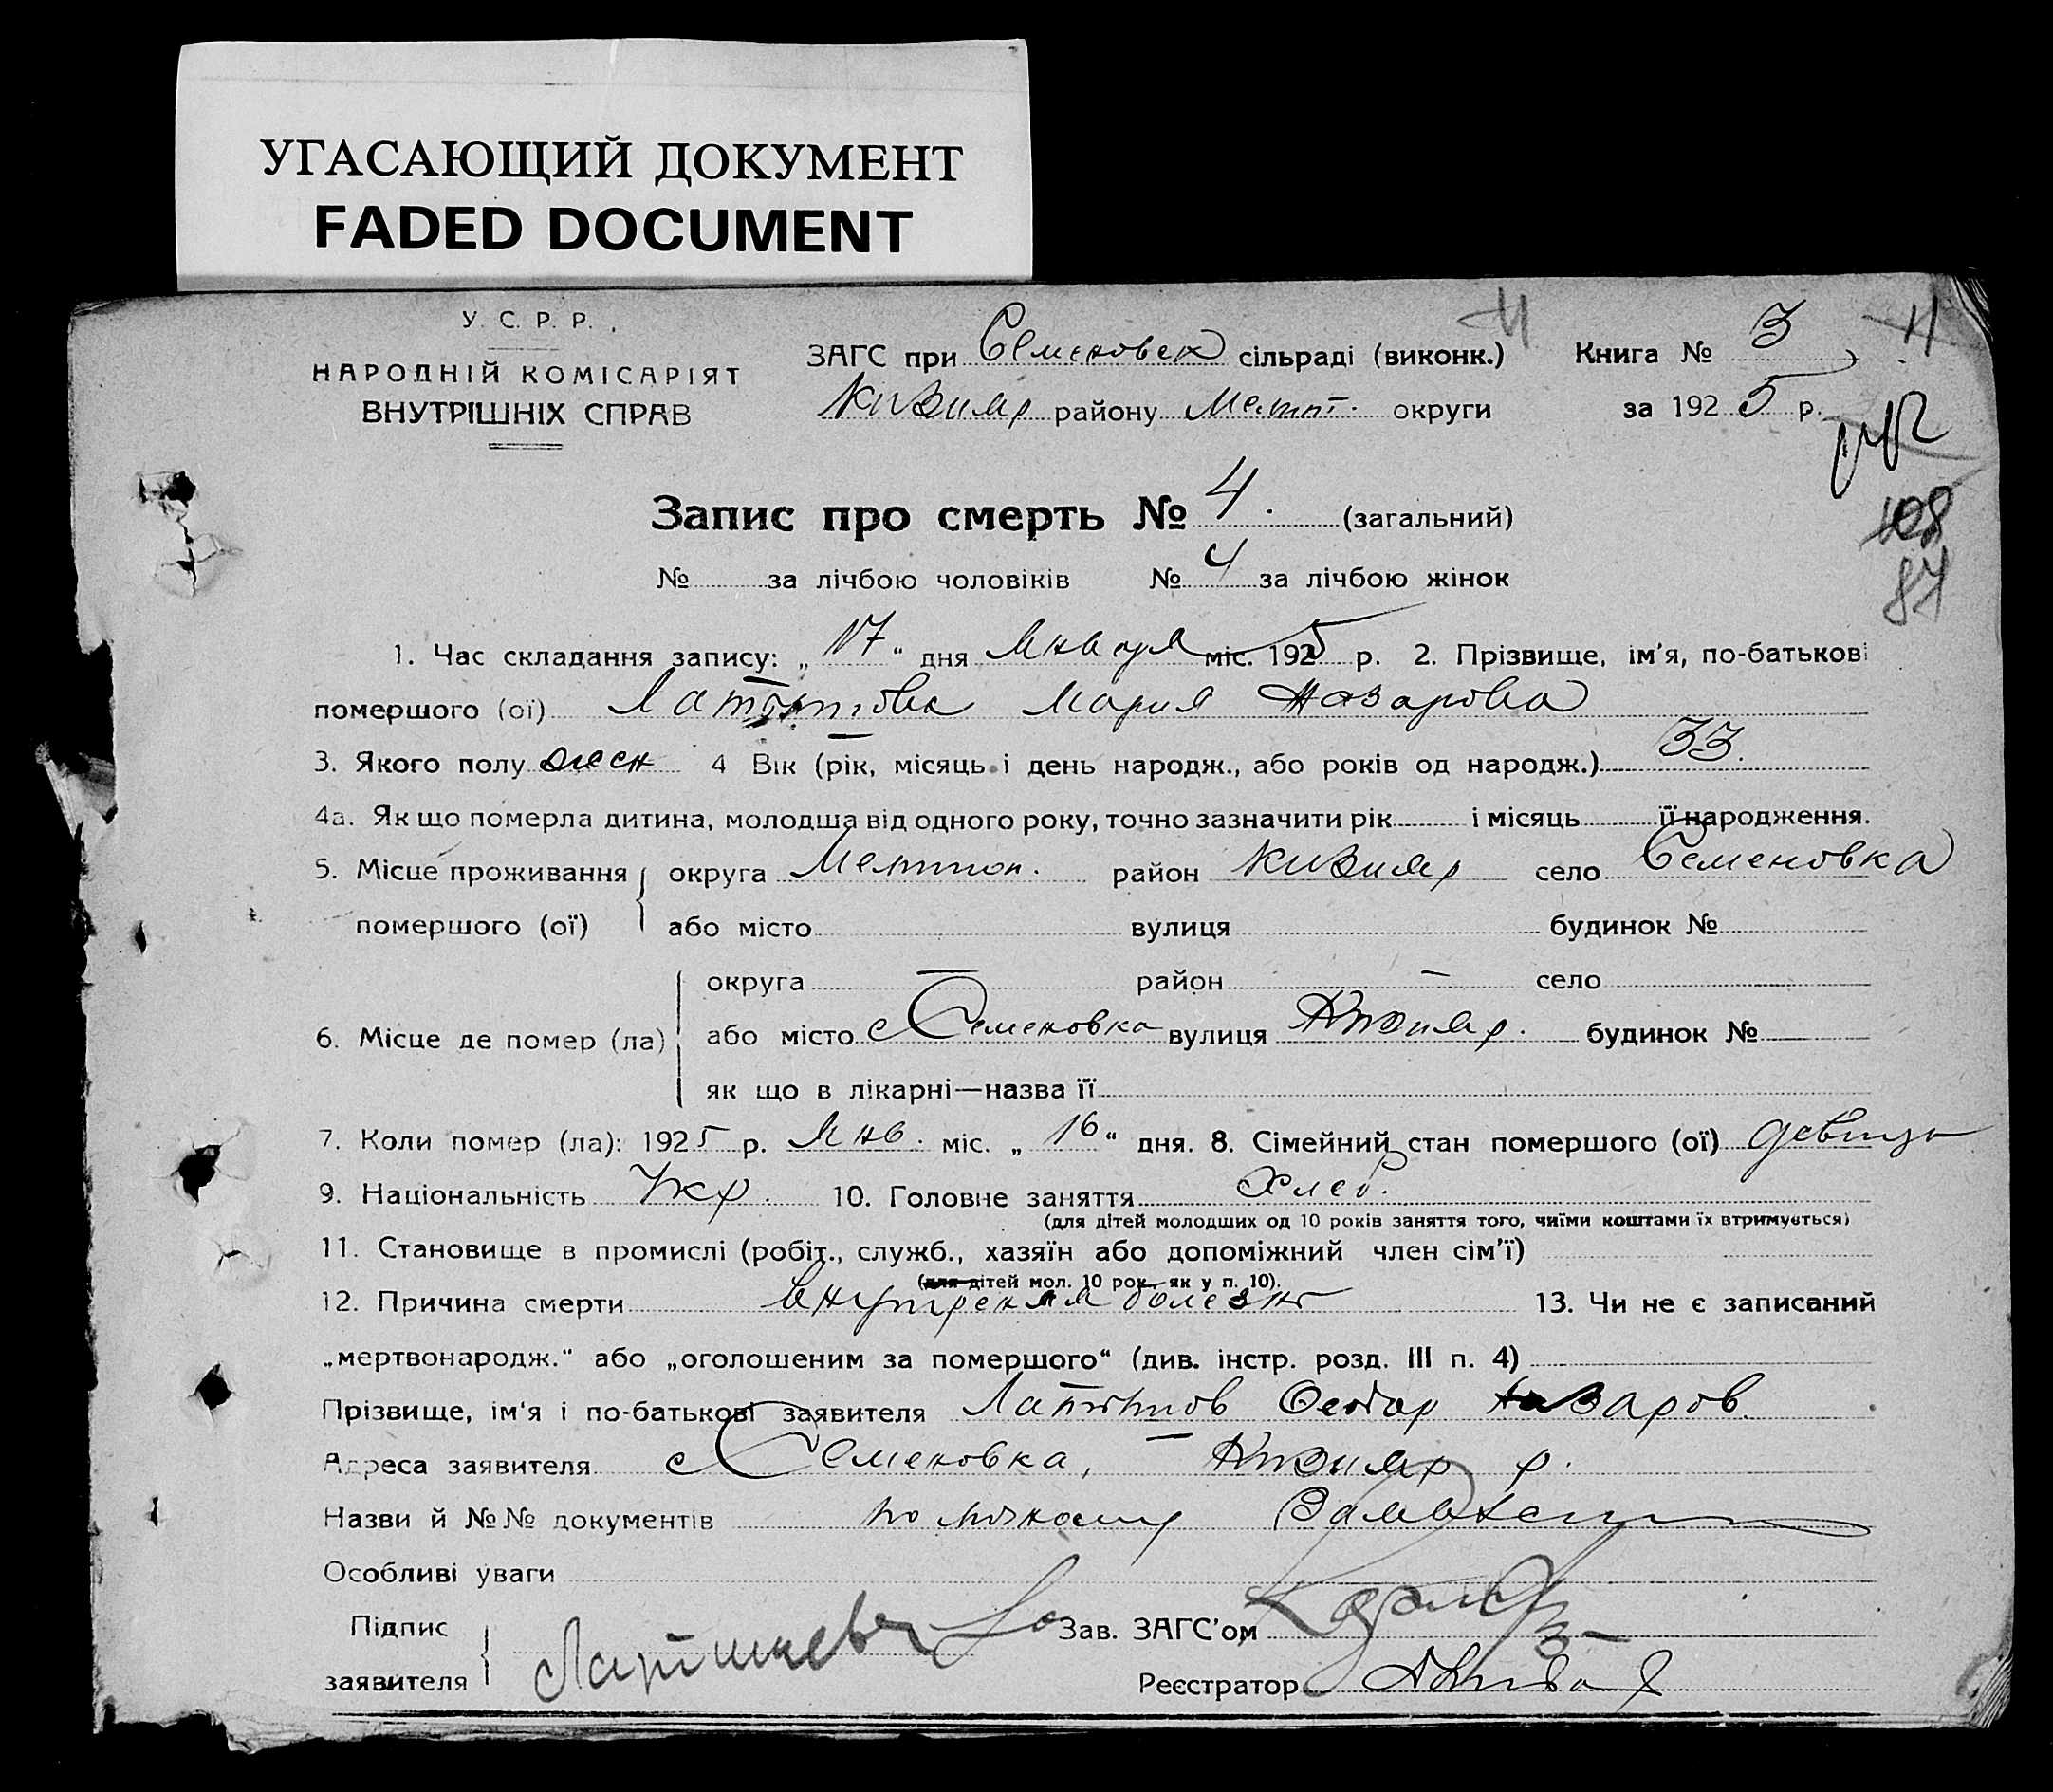 УГАСАЮЩИЙ ДОКУМЕНТ
FADED DOCUMENT
У. С. Р. Р.
НАРОДНІЙ КОМІСАРІЯТ
ВНУТРІШНІХ СПРАВ
ЗАГС при Семеновск сільраді (виконк.)
Кизияр району Мелит. округи
Книга № 3
за 1925 р.
Запис про смерть № 4. (загальний)
№ за лічбою чоловіків № 4 за лічбою жінок
1. Час складання запису: „17“ дня Января міс. 1925 р. 2. Прізвище, ім'я, по-батькові
помершого (ої) Мария Назарова
3. Якого полу жен 4 Вік (рік, місяць і день народж., або років од народж.) 33.
4а. Як що померла дитина, молодша від одного року, точно зазначити рік і місяць її народження.
5. Місце проживання округа Мелитоп. район Кизияр село Семеновка
помершого (ої) або місто вулиця будинок №
округа — район — село
6. Місце де помер (ла) або місто с Семеновка вулиця Кизияр. будинок №
як що в лікарні—назва її
7. Коли помер (ла): 1925 р. Янв. міс. „16“ дня. 8. Сімейний стан помершого (ої) девица
9. Національність Укр. 10. Головне заняття Хлеб.
(для дітей молодших од 10 років заняття того, чиїми коштами їх втримується)
11. Становище в промислі (робіт., служб., хазяїн або допоміжний член сім'ї)
(для дітей мол. 10 рок. як у п. 10).
12. Причина смерти внутреняя болезнь 13. Чи не є записаний
„мертвонародж.“ або „оголошеним за помершого“ (див. інстр. розд. III п. 4)
Прізвище, ім'я і по-батькові заявителя Федор Назаров.
Адреса заявителя с Семеновка, Кизияр р.
Назви й №№ документів
Особливі уваги
Підпис
заявителя
Зав. ЗАГС'ом
Реєстратор